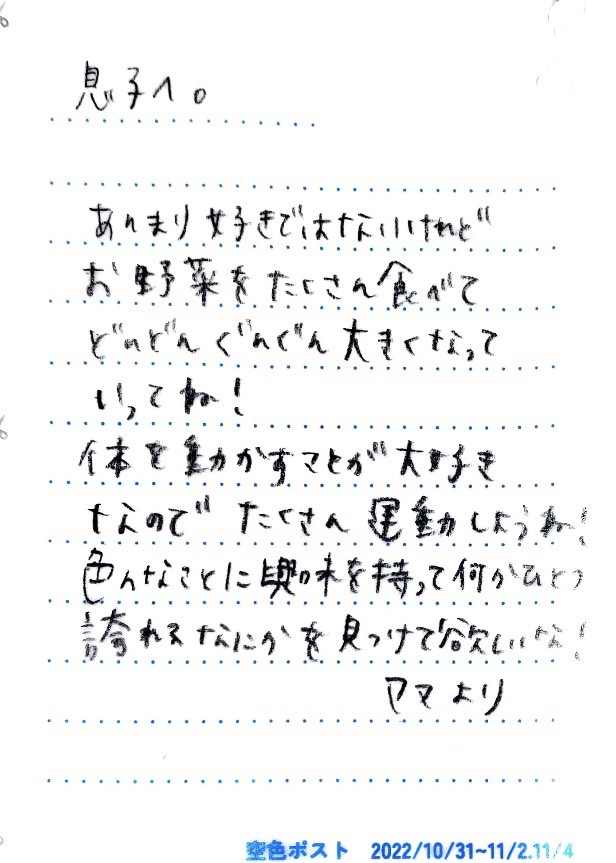 息子へ。
あんまり好きではないけれど
お野菜をたくさん食べて
どんどんぐんぐん大きくなって
いってね!
体を動かすことが大好き
なのでたくさん運動しようね!
色んなことに興味を持って何かひとつ
誇れるなにかを見つけて欲しいな!
ママより
空色ポスト 2022/10/31~11/2.11/4